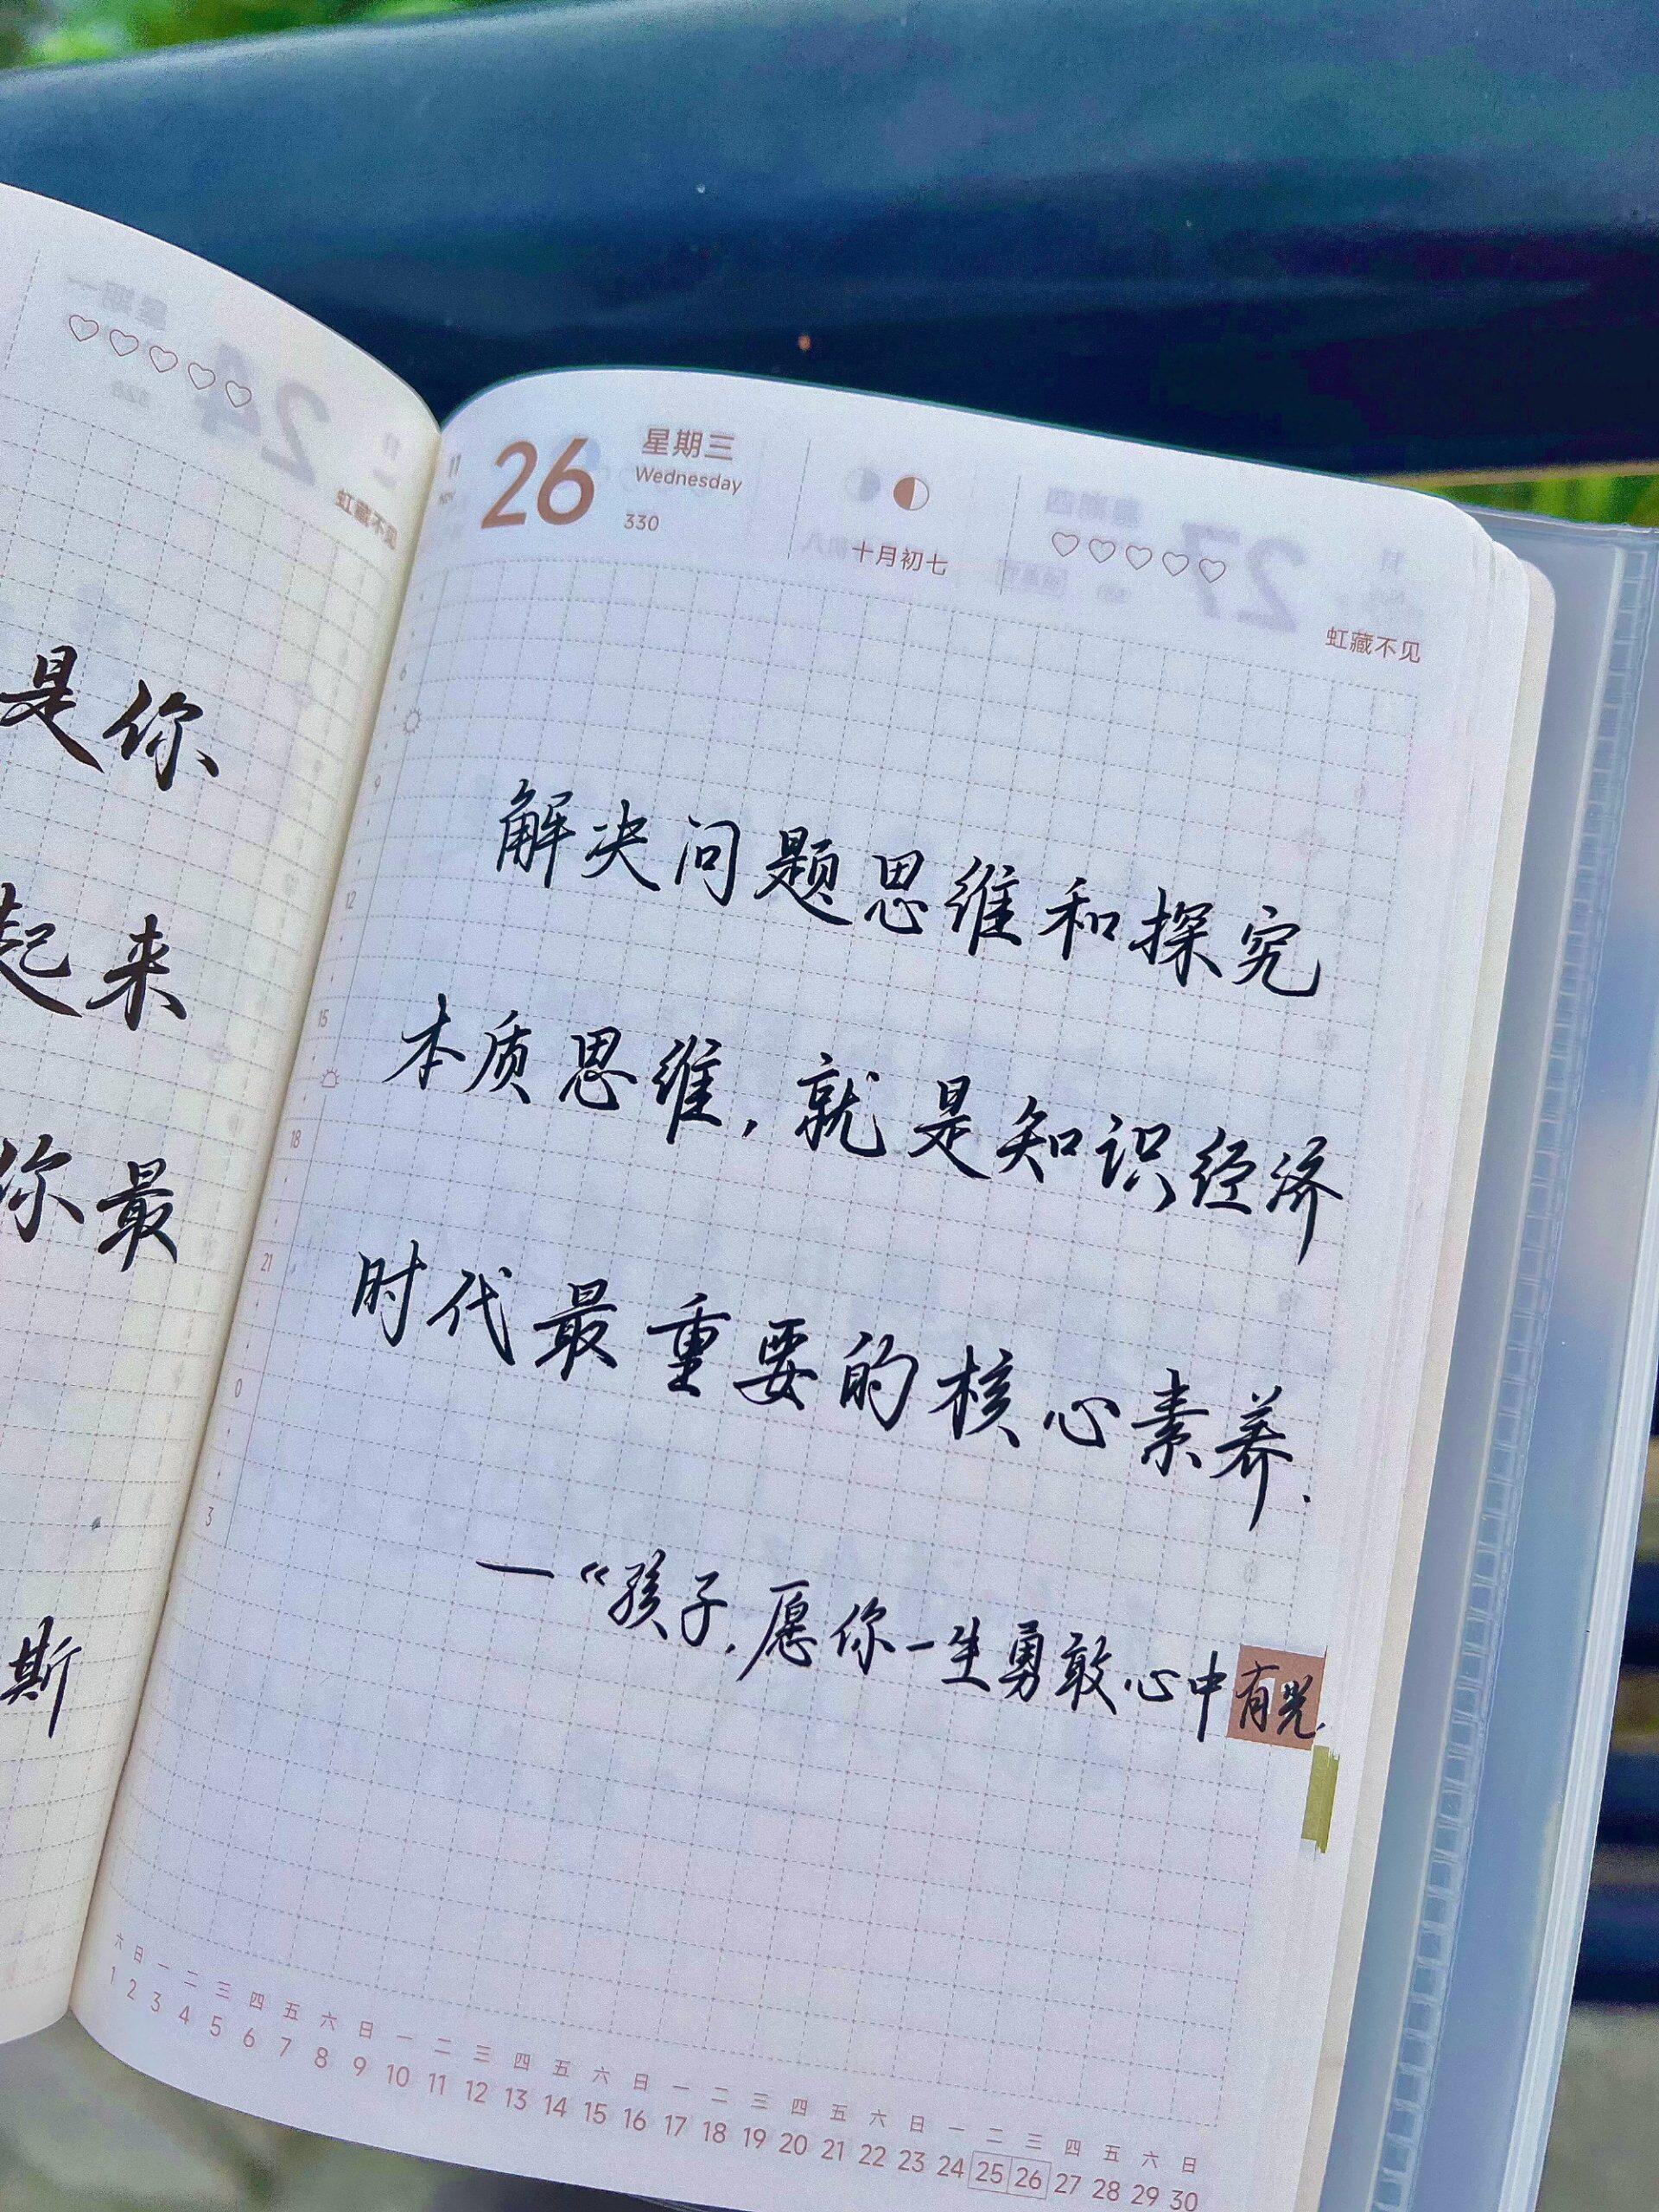 是你
起来
你最
斯
虹藏不见
11
26
星期三
Wednesday
330
十月初七
虹藏不见
6
9
12
15
18
21
0
3
解决问题思维和探究
本质思维,就是知识经济
时代最重要的核心素养.
—《孩子,愿你一生勇敢心中有光.
六 日 一 二 三 四 五 六 日 一 二 三 四 五 六 日 一 二 三 四 五 六 日 一 二 三 四 五 六 日
1 2 3 4 5 6 7 8 9 10 11 12 13 14 15 16 17 18 19 20 21 22 23 24 25 26 27 28 29 30